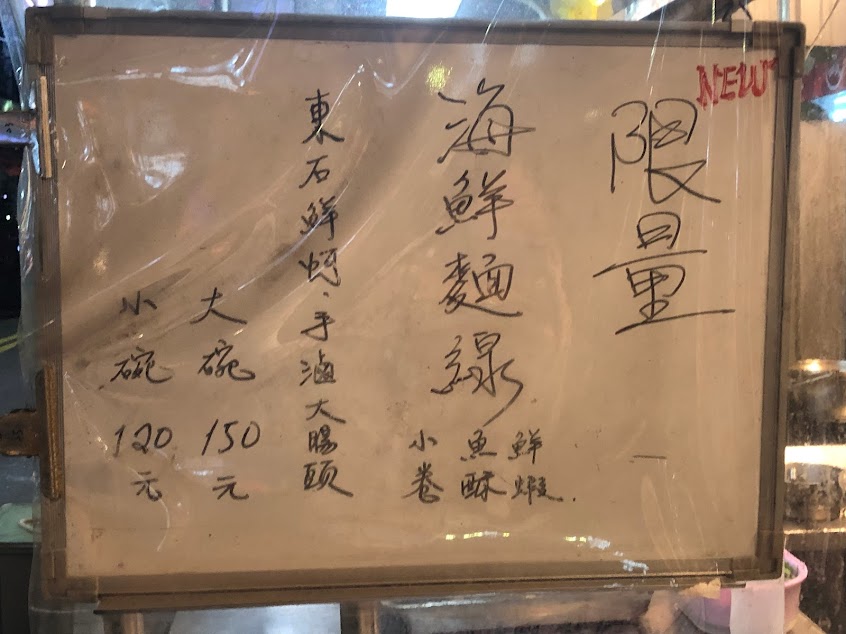 NEW
限量
海鮮麵線
鮮蝦
魚酥
小卷
東石鮮蚵、手滷大腸頭
大碗 150元
小碗 120元